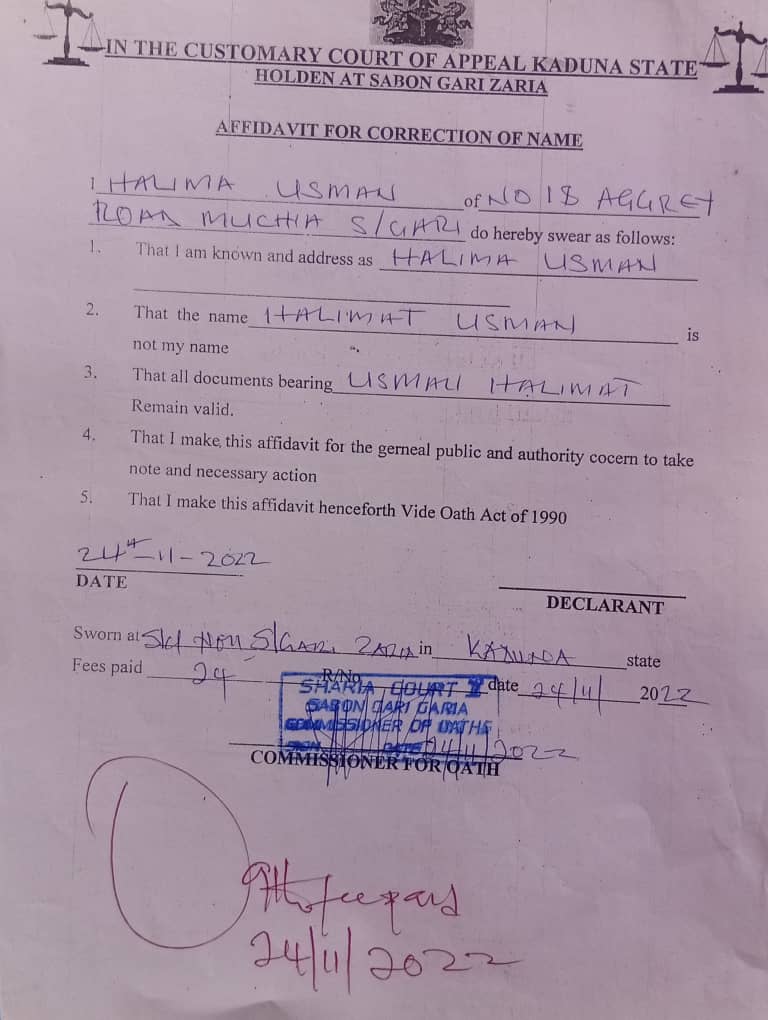 IN THE CUSTOMARY COURT OF APPEAL KADUNA STATE
HOLDEN AT SABON GARI ZARIA
AFFIDAVIT FOR CORRECTION OF NAME
I HALIMA USMAN of NO 18 AGGREY
ROAD MUCHIA S/GARI do hereby swear as follows:
1. That I am known and address as HALIMA USMAN
2. That the name HALIMAT USMAN is
not my name
3. That all documents bearing USMAN HALIMAT
Remain valid.
4. That I make this affidavit for the gerneal public and authority cocern to take
note and necessary action
5. That I make this affidavit henceforth Vide Oath Act of 1990
24th-11-2022
DATE
DECLARANT
Sworn at S/GARI ZARIA in KADUNA state
Fees paid R/No date 24/11/ 2022
SHARIA COURT
SABON GARI GARIA
COMMISSIONER OF OATHS
SIGN DATE 24/11/2022
COMMISSIONER FOR OATH
fee paid
24/11/2022